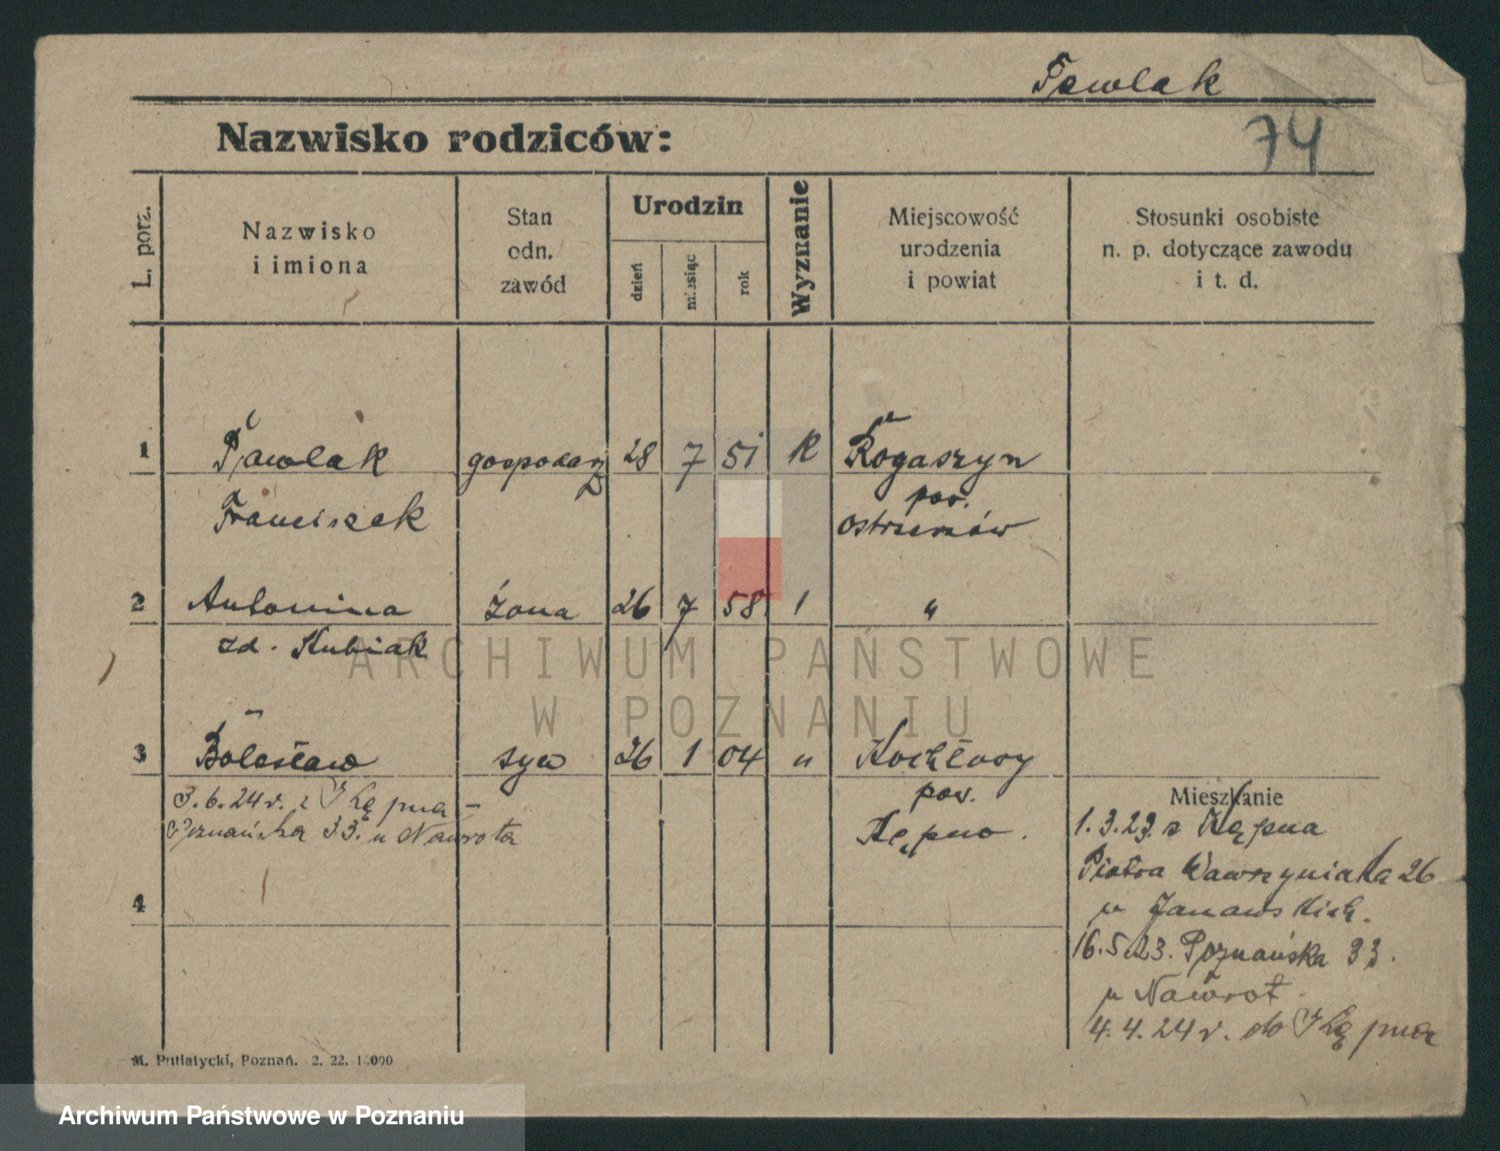 Pawlak
74
Nazwisko rodziców:
L. porz.
Nazwisko
i imiona
Stan
odn.
zawód
Urodzin
dzień
miesiąc
rok
Wyznanie
Miejscowość
urodzenia
i powiat
Stosunki osobiste
n. p. dotyczące zawodu
i t. d.
1 Pawlak gospodarz 28 7 51 K Rogaszyn
Franciszek pow.
Ostrzeszów
2 Antonina żona 26 7 58 "
zd. Kubiak
3 Bolesław syn 26 1 04 " Kochłowy
pow.
Kępno.
3.6.24 r. z Kępna –
Poznańska 33. u Nawrota
4
Mieszkanie
1.3.23. z Kępna
Piotra Wawrzyniaka 26
u Janowskich.
16.5.23. Poznańska 33.
u Nawrot.
4.4.24 r. do Kępna
M. Putiatycki, Poznań. 2. 22.
ARCHIWUM PAŃSTWOWE
W POZNANIU
Archiwum Państwowe w Poznaniu